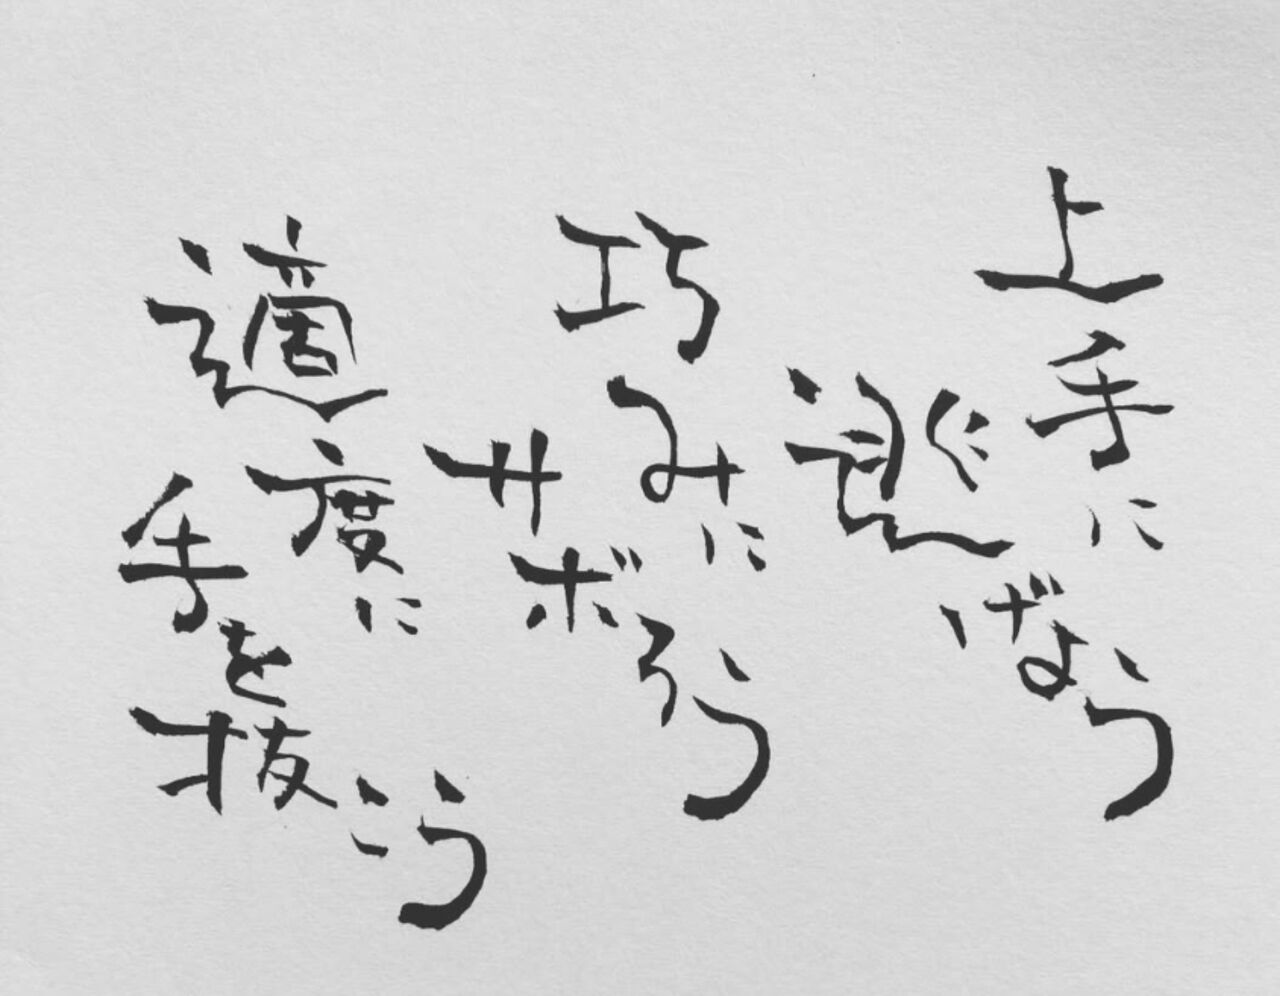 上手に
逃げよう
巧みに
サボろう
適度に
手を抜こう